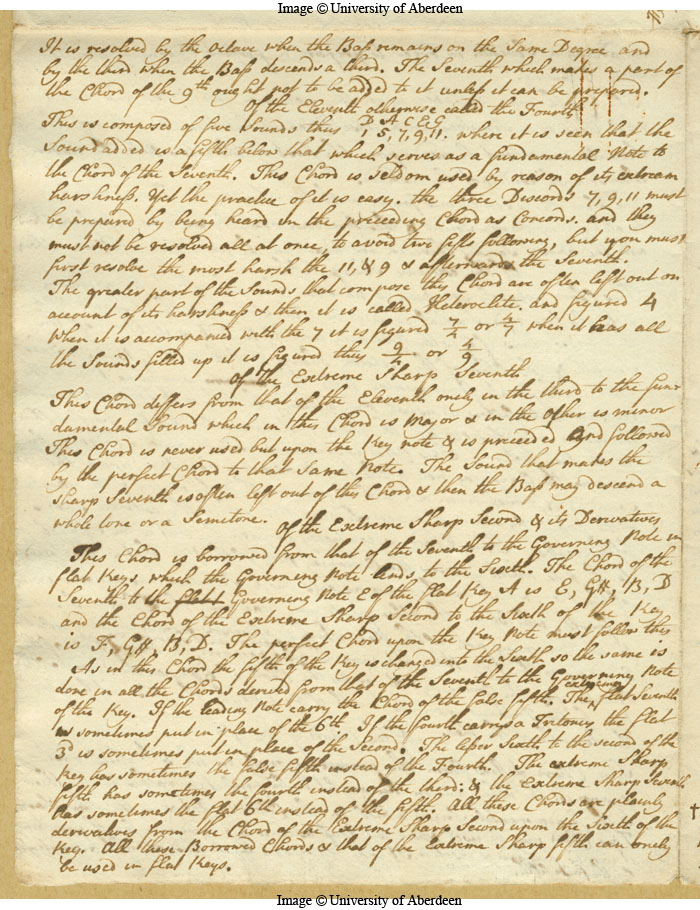 Image © University of Aberdeen
It is resolved by the Octave when the Bass remains on the Same Degree and
by the third when the Bass descends a third. The Seventh which makes a part of
the Chord of the 9th ought not to be added to it unless it can be prepared.
Of the Eleventh otherwise called the Fourth
This is composed of five Sounds thus D A C E G
1 5, 7, 9, 11. where it is seen that the
Sound added is a fifth below that which serves as a fundamental Note to
the Chord of the Seventh. This Chord is seldom used by reason of its extream
harshness. Yet the practice of it is easy. the three Discords 7, 9, 11 must
be prepared by being heard in the preceeding Chord as Concords. and they
must not be resolved all at once, to avoid two fifts following, but you must
first resolve the most harsh the 11, & 9 & afterwards the Seventh.
The greater part of the Sounds that compose this Chord are often left out on
account of its harshness & then it is called Heteroclite. and figured 4
When it is accompanied with the 7 it is figured 7/4 or 4/7 when it has all
the Sounds filled up it is figured thus 9/4 or 4/9
Of the Extreme Sharp Seventh
This Chord differs from that of the Eleventh onely in the third to the fun-
damental Sound which in this Chord is Major & in the other is minor
This Chord is never used but upon the Key note & is preceeded and followed
by the perfect Chord to that same Note. The Sound that makes the
Sharp Seventh is often left out of this Chord & then the Bass may descend a
whole tone or a Semitone.
Of the Extreme Sharp Second & its Derivatives
This Chord is borrowed from that of the Seventh to the Governing Note in
flat Keys, which the Governing Note lends, to the Sixth. The Chord of the
Seventh to the flat Governing Note E of the flat Key A is E, G#, B, D
and the Chord of the Extreme Sharp Second to the Sixth of the Key
is F, G#, B, D. The perfect Chord upon the Key Note must follow this
As in this Chord the fifth of the Key is changed into the Sixth, so the same is
done in all the Chords derived from that of the Seventh to the Governing Note
of the Key. If the leading Note carry the Chord of the false fifth. The extream flat Seventh
is sometimes put in place of the 6th If the fourth carrys a Tritonus the flat
3d is sometimes put in place of the Second. The lesser Sixth to the second of the
Key has sometimes the false fifth instead of the Fourth. The extreme Sharp
fifth has sometimes the fourth instead of the third: & the Extreme Sharp Seventh
has sometimes the flat 6th instead of the fifth. All these Chords are plainly
derivatives from the Chord of the Extreme Sharp Second upon the Sixth of the
Key. All these Borrowed Chords & that of the Extreme Sharp fifth can onely
be used in flat Keys.
Image © University of Aberdeen